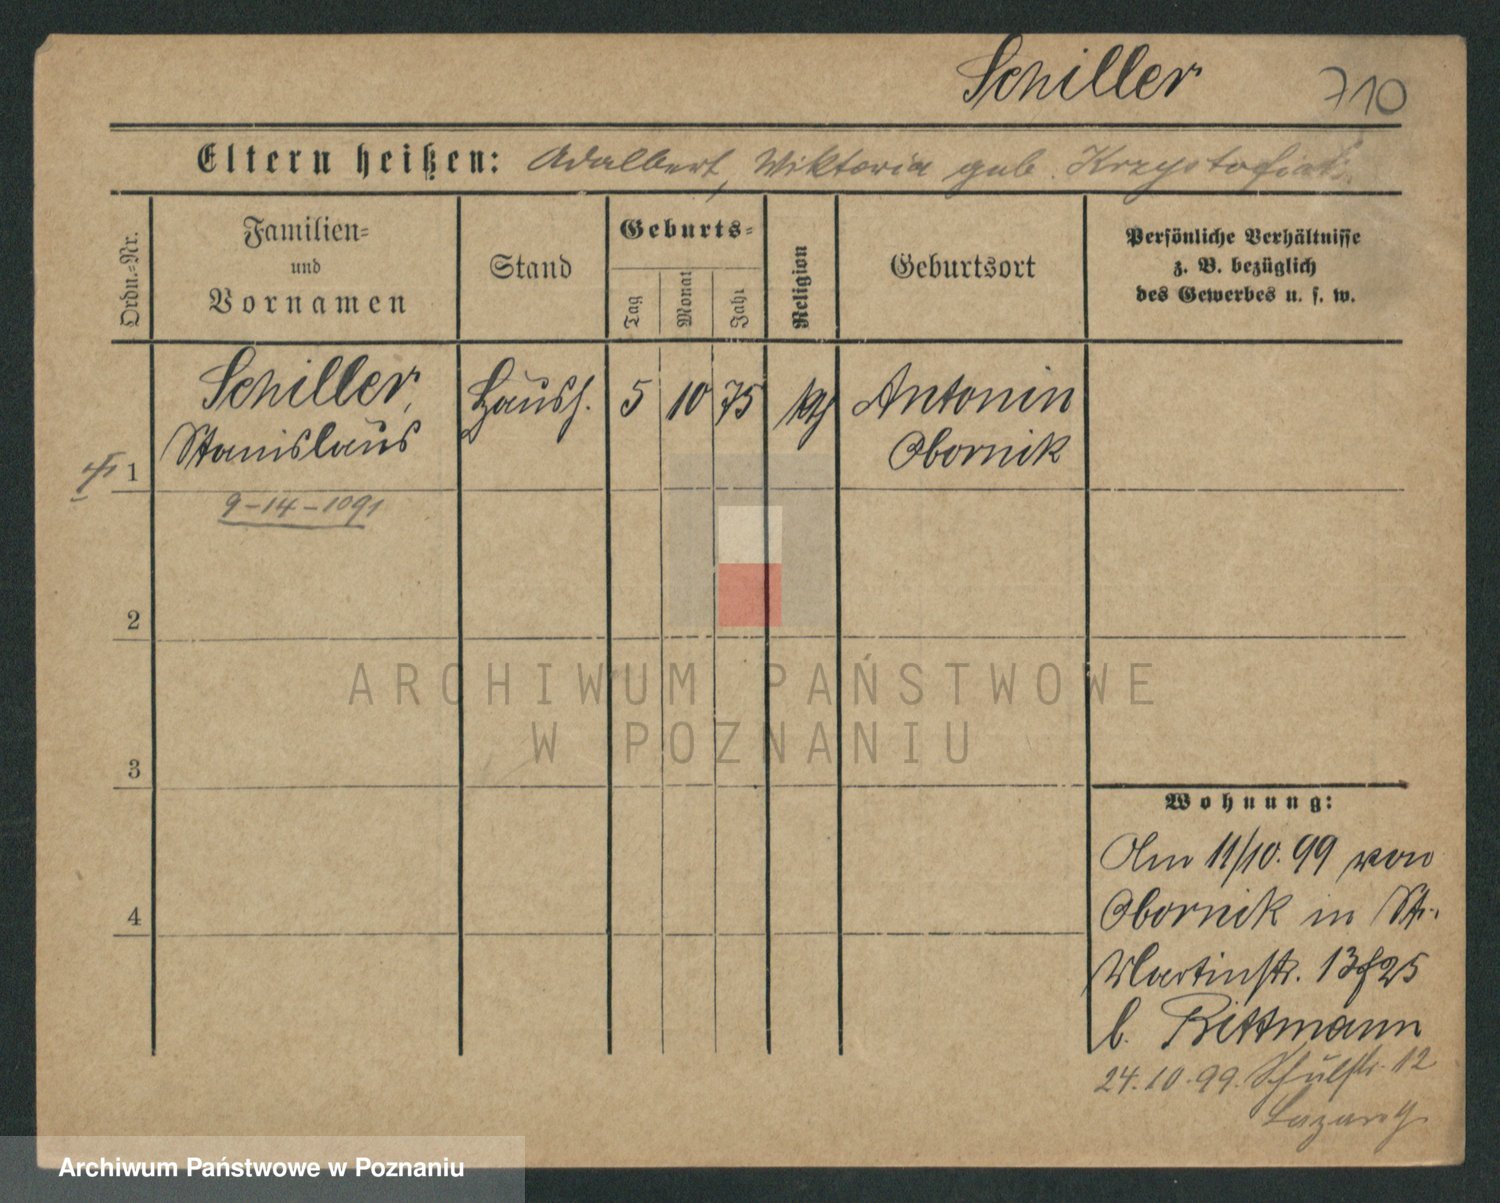 Schiller 710
Eltern heißen: Adalbert, Wiktoria geb.
Ordn.=Nr.
Familien=
und
Vornamen
Stand
Geburts=
Tag
Monat
Jahr
Religion
Geburtsort
Persönliche Verhältnisse
z. B. bezüglich
des Gewerbes u. s. w.
1
Schiller,
Stanislaus
Haush.
5
10
75
kth
Antonin
Obornik
9-14-1091
2
3
4
ARCHIWUM PAŃSTWOWE
W POZNANIU
Wohnung:
Am 11/10. 99 von
Obornik in St.
Martinstr. 13
b. Bittmann
24.10.99. Schulstr. 12
Archiwum Państwowe w Poznaniu